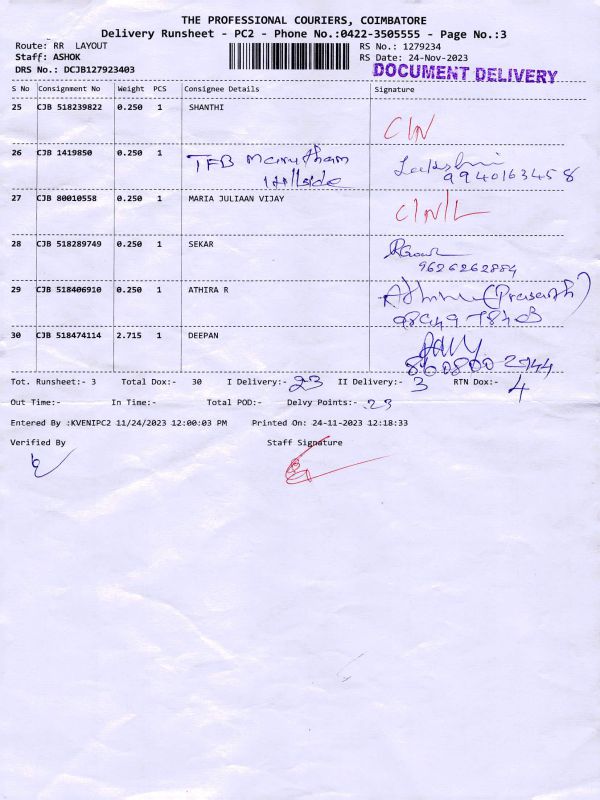 THE PROFESSIONAL COURIERS, COIMBATORE
Delivery Runsheet - PC2 - Phone No.:0422-3505555 - Page No.:3
Route: RR LAYOUT
RS No.: 1279234
Staff: ASHOK
RS Date: 24-Nov-2023
DRS No.: DCJB127923403
DOCUMENT DELIVERY
S No Consignment No Weight PCS Consignee Details Signature
25 CJB 518239822 0.250 1 SHANTHI
CIN
26 CJB 1419850 0.250 1 TFB Marutham Lakshmi
Hillside 9940163458
27 CJB 80010558 0.250 1 MARIA JULIAAN VIJAY
CIN/L
28 CJB 518289749 0.250 1 SEKAR
9626262884
29 CJB 518406910 0.250 1 ATHIRA R (Prasanth)
30 CJB 518474114 2.715 1 DEEPAN
860800-2944
Tot. Runsheet:- 3 Total Dox:- 30 I Delivery:- 23 II Delivery:- 3 RTN Dox:- 4
Out Time:- In Time:- Total POD:- Delvy Points:- 23
Entered By :KVENIPC2 11/24/2023 12:00:03 PM Printed On: 24-11-2023 12:18:33
Verified By Staff Signature